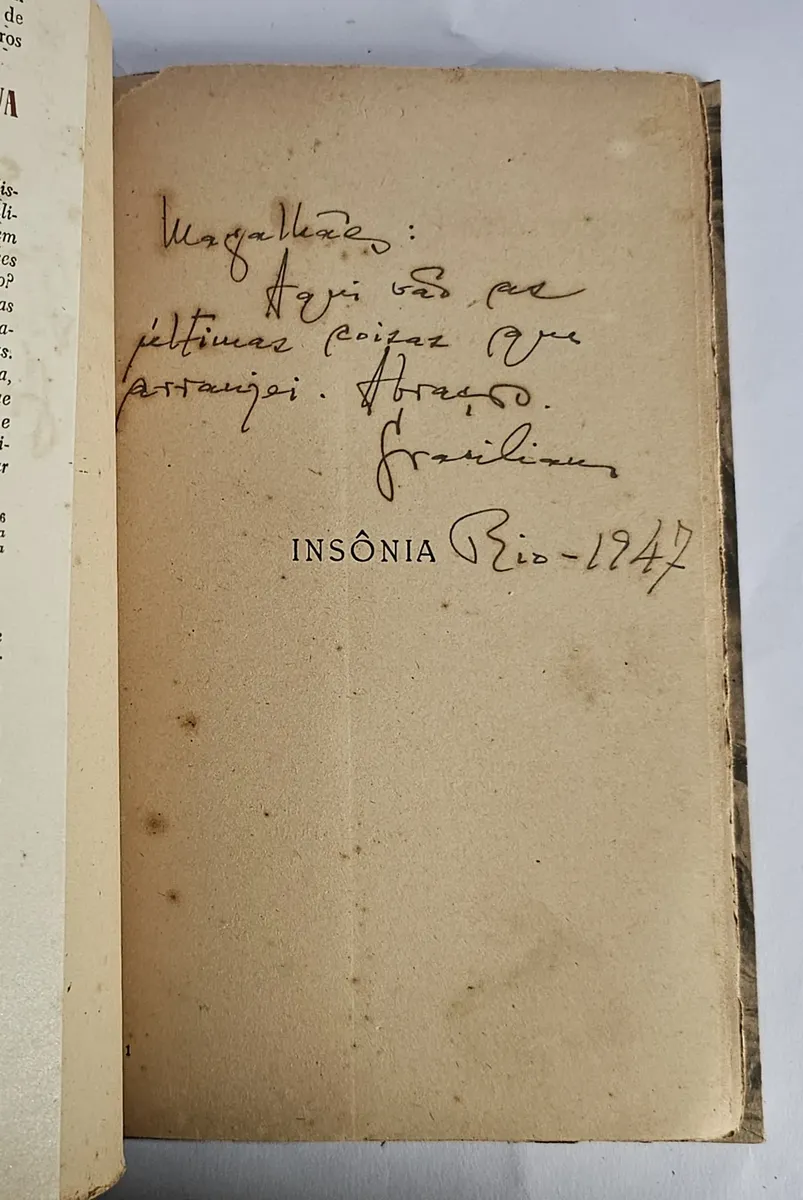 de
ros
VA
is-
li-
em
res
o?
as
a-
s.
a,
ue
e
i-
r
6
a
a
e
Magalhães:
Aqui vão as
últimas coisas que
arranjei. Abraço.
Graciliano
INSÔNIA Rio-1947
1